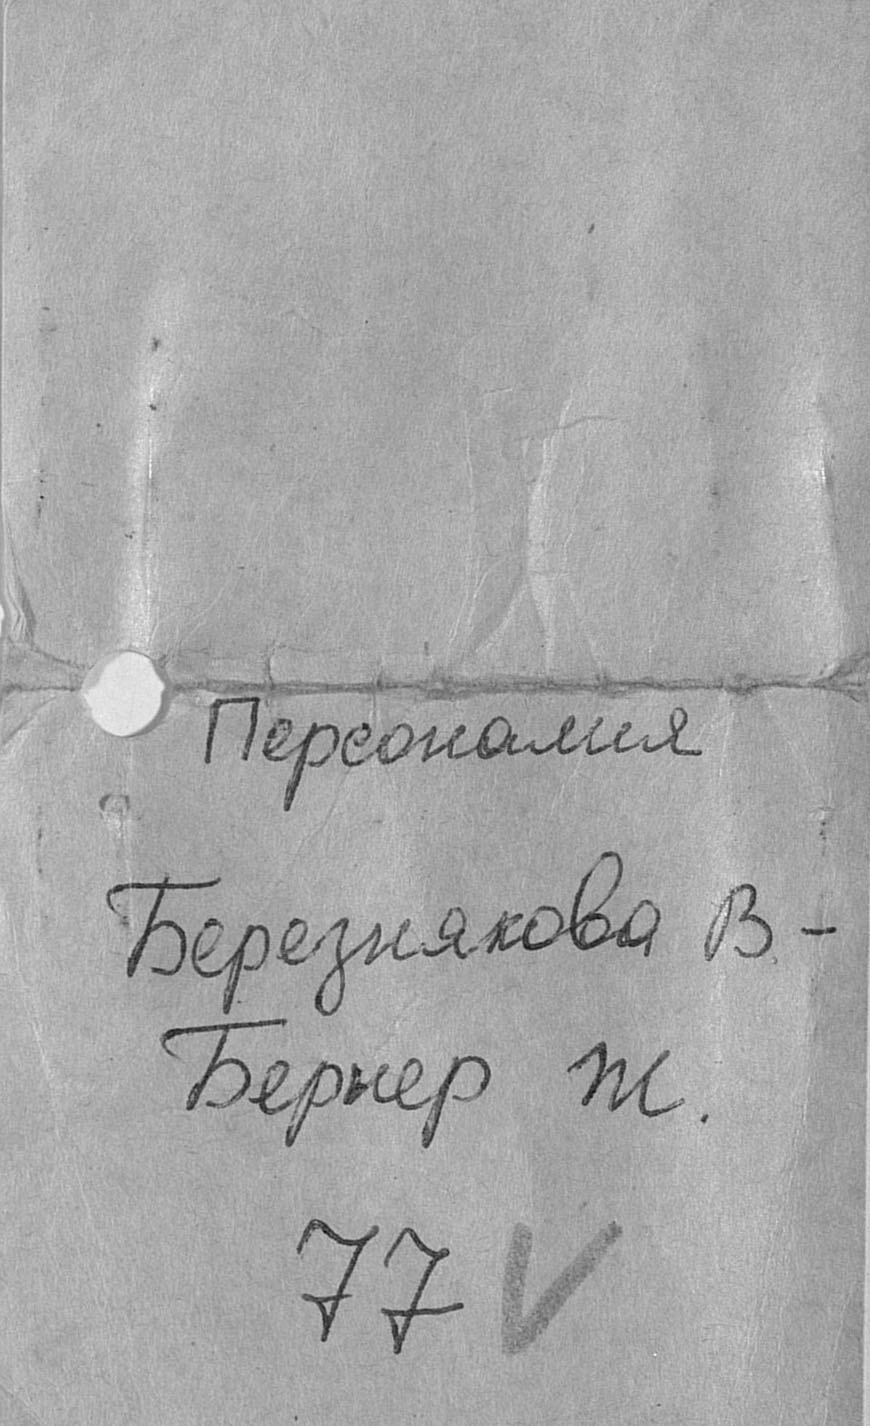 Персоналия
Березнякова В. -
Бернер Ж.
77 V